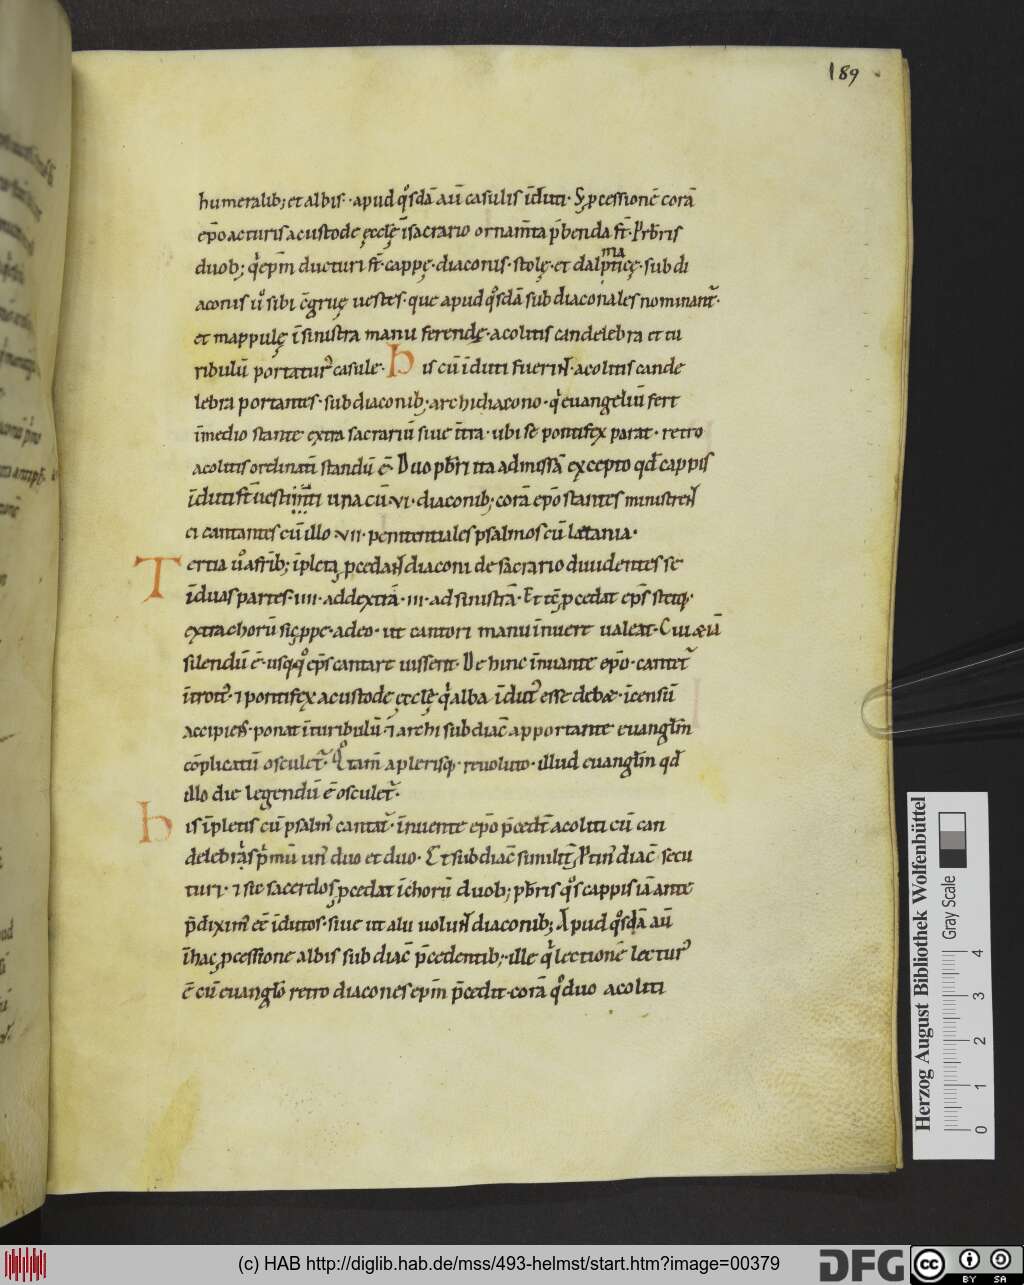 189
humeralib; et albis· apud q°sdā aū casulis īduti· S; pcessionē corā
epō acturis a custode ęcclę ī sacrario ornam̄ta p̄benda sт̄· Prb̄ris
duob; q̇ ep̄m ducturi sт̄· cappę· diaconis· stolę· et dalmaticę· subdi
aconis ů sibi c̄gruę uestes· que apud q°sdā subdiaconales nominant̃·
et mappulę ī sinistra manu ferendę· acolitis candelebra et tu
ribulū portatur̃ casule· His cū īduti fuerint̄· acolitis cande
lebra portantes· subdiaconib; archidiacono· q̇ euangeliū fert
ī medio stante extra sacrariū siue īt̄ra· ubi se pontifex parat· retro
acolitis ordinatī standū ē· Duo pb̄ri ita ad missā excepto qđ cappis
īduti sт̄ uestim̄ti una cū ·vi· diaconib; corā epō stantes ministrent̄
ei cantantes cū illo ·vii· penitentiales psalmos cū lætania·
Tertia ů a fr̄ib; īpleta, pcedant̄ diaconi de sacrario diuidentes se
ī duas partes· iiii· ad dextrā· iii· ad sinistrā· Et tē pcedat ep̄s
extra chorū sic ppe· adeo· ut cantori manu īnuert ualeat· Cui æū
silendū ē· usq;q° ep̄s cantare iussent· De hinc īnuante epō· cantet̃
īt̄rot̄· ⁊ pontifex a custode ęcclę q̇ alba īdut̃ esse debæ· īcensū
accipiens̄· ponat ī turibulū· ⁊ archisubdiac̄ apportante euangłm̄
cōplicatū osculet̃· Q°tam̄ a plerisq;· reuoluto· illud euangłm̄ qđ
illo die legendū ē osculet̃·
His īpletis cū psalm̄ cantat̃· īnuente epō p̄cedt̄ acoliti cū can
delebris p̄mū un̄ duo et duo· Et subdiac̄ similit̃, Ptin̄ diac̄ secu
turi· ⁊ sic sacerdos, pcedat ī chorū duob; pb̄ris q°s cappis iā ante
p̄dixim̄ eē īdutos· siue ut alii uolunt̄ diaconib; Apud q°sdā aū
ī hac, pcessione albis subdiac̄ p̄cedentib;· ille q̇ lectionē lectur̃
ē cū euangłō retro diacones ep̄m p̄cedit· corā q° duo acoliti
Herzog August Bibliothek Wolfenbüttel
Gray Scale
0 1 2 3 4
(c) HAB http://diglib.hab.de/mss/493-helmst/start.htm?image=00379
DFG
cc BY SA